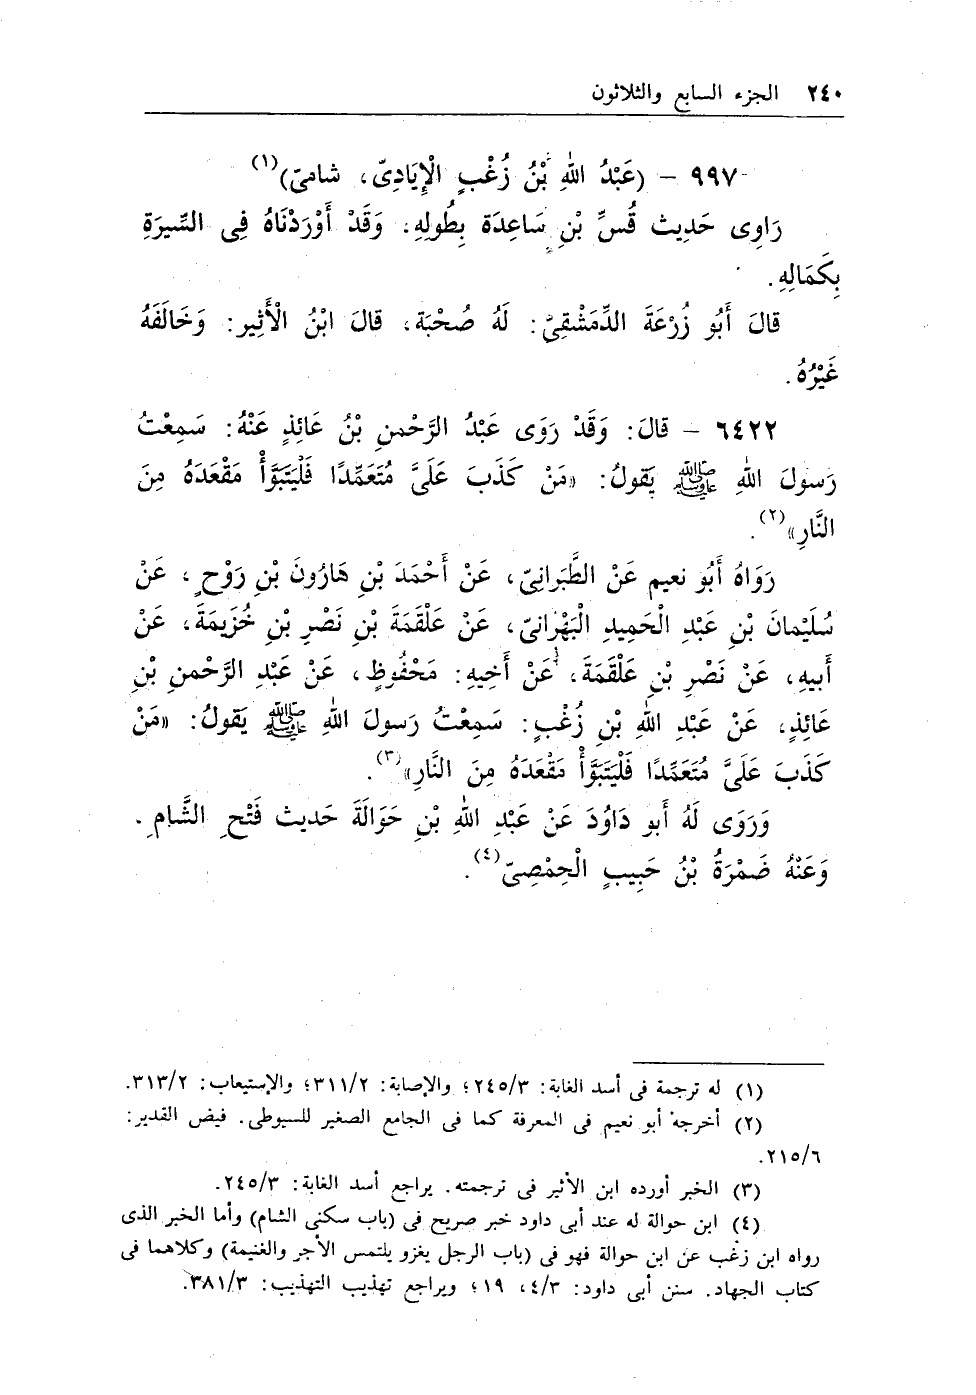 ٢٤٠ الجزء السابع والثلاثون
٩٩٧ - (عَبْدُ اللهِ بْنُ زُغْبٍ الْإِيَادِىّ، شامىّ)(١)
رَاوِى حَدِيث قُسِّ بْنِ سَاعِدَة بِطُولِهِ. وَقَدْ أَوْرَدْنَاهُ فِى السِّيرَةِ
بِكَمَالِهِ.
قالَ أَبُو زُرْعَةَ الدِّمَشْقِىّ: لَهُ صُحْبَة، قالَ ابْنُ الْأَثِير: وَخَالَفَهُ
غَيْرُهُ.
٦٤٢٢ - قالَ: وَقَدْ رَوَى عَبْدُ الرَّحْمنِ بْنُ عَائِذٍ عَنْهُ: سَمِعْتُ
رَسولَ اللهِ ﷺ يَقولُ: «مَنْ كَذَبَ عَلَىَّ مُتَعَمِّدًا فَلْيَتَبَوَّأْ مَقْعَدَهُ مِنَ
النَّارِ»(٢).
رَوَاهُ أَبُو نعيم عَنْ الطَّبَرانِىّ، عَنْ أَحْمَدَ بْنِ هَارُونَ بْنِ رَوْحٍ، عَنْ
سُلَيْمانَ بْنِ عَبْدِ الْحَمِيدِ الْبَهْرَانىّ، عَنْ عَلْقَمَةَ بْنِ نَصْرِ بْنِ خُزَيمَةَ، عَنْ
أَبيهِ، عَنْ نَصْرِ بْنِ عَلْقَمَةَ، عَنْ أَخِيهِ: مَحْفُوظٍ، عَنْ عَبْدِ الرَّحْمنِ بْنِ
عَائِذٍ، عَنْ عَبْدِ اللهِ بْنِ زُغْبٍ: سَمِعْتُ رَسولَ اللهِ ﷺ يَقولُ: «مَنْ
كَذَبَ عَلَىَّ مُتَعَمِّدًا فَلْيَتَبَوَّأْ مَقْعَدَهُ مِنَ النَّارِ»(٣).
وَرَوَى لَهُ أَبو دَاوُدَ عَنْ عَبْدِ اللهِ بْنِ حَوَالَةَ حَديث فَتْحِ الشَّامِ.
وَعَنْهُ ضَمْرَةُ بْنُ حَبِيبٍ الْحِمْصِىّ(٤).
(١) له ترجمة فى أسد الغابة: ٢٤٥/٣؛ والإصابة: ٣١١/٢؛ والإستيعاب: ٣١٣/٢.
(٢) أخرجه أبو نعيم فى المعرفة كما فى الجامع الصغير للسيوطى. فيض القدير:
٢١٥/٦.
(٣) الخبر أورده ابن الأثير فى ترجمته. يراجع أسد الغابة: ٢٤٥/٣.
(٤) ابن حوالة له عند أبى داود خبر صريح فى (باب سكنى الشام) وأما الخبر الذى
رواه ابن زغب عن ابن حوالة فهو فى (باب الرجل يغزو يلتمس الأجر والغنيمة) وكلاهما فى
كتاب الجهاد. سنن أبى داود: ٤/٣، ١٩؛ ويراجع تهذيب التهذيب: ٣٨١/٣.